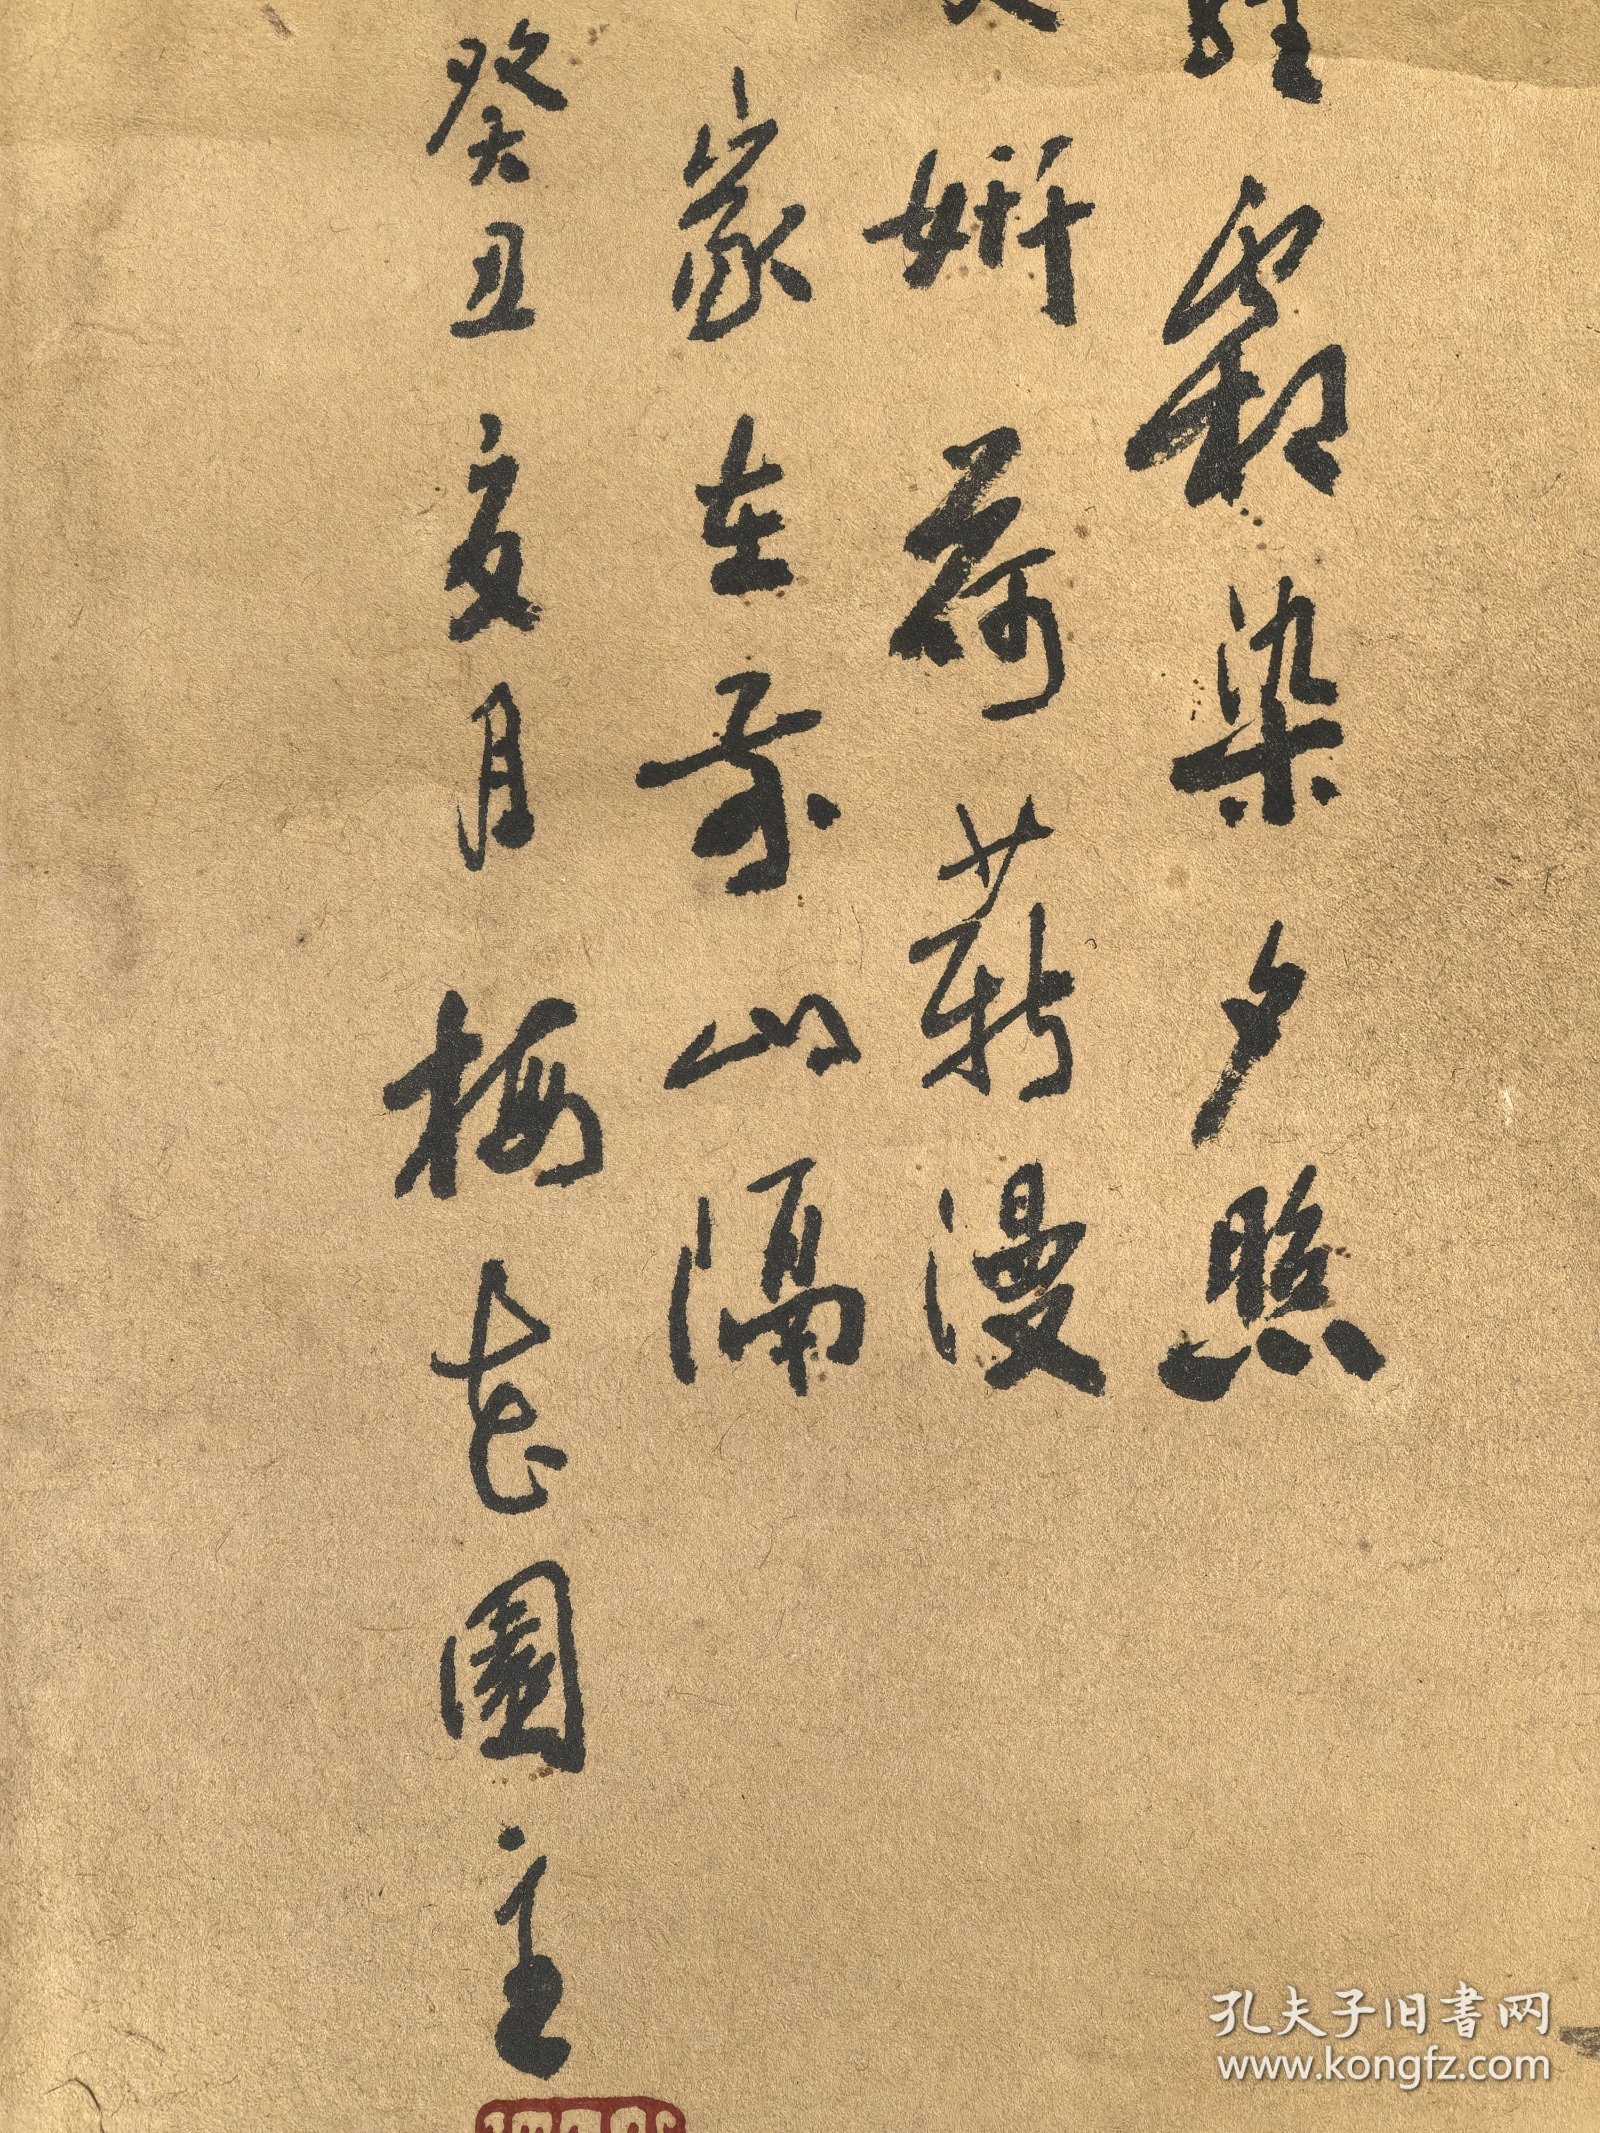 霜染夕照
妍荷薪漫
家在山隔
癸丑夏月梅園主
孔夫子旧书网
www.kongfz.com